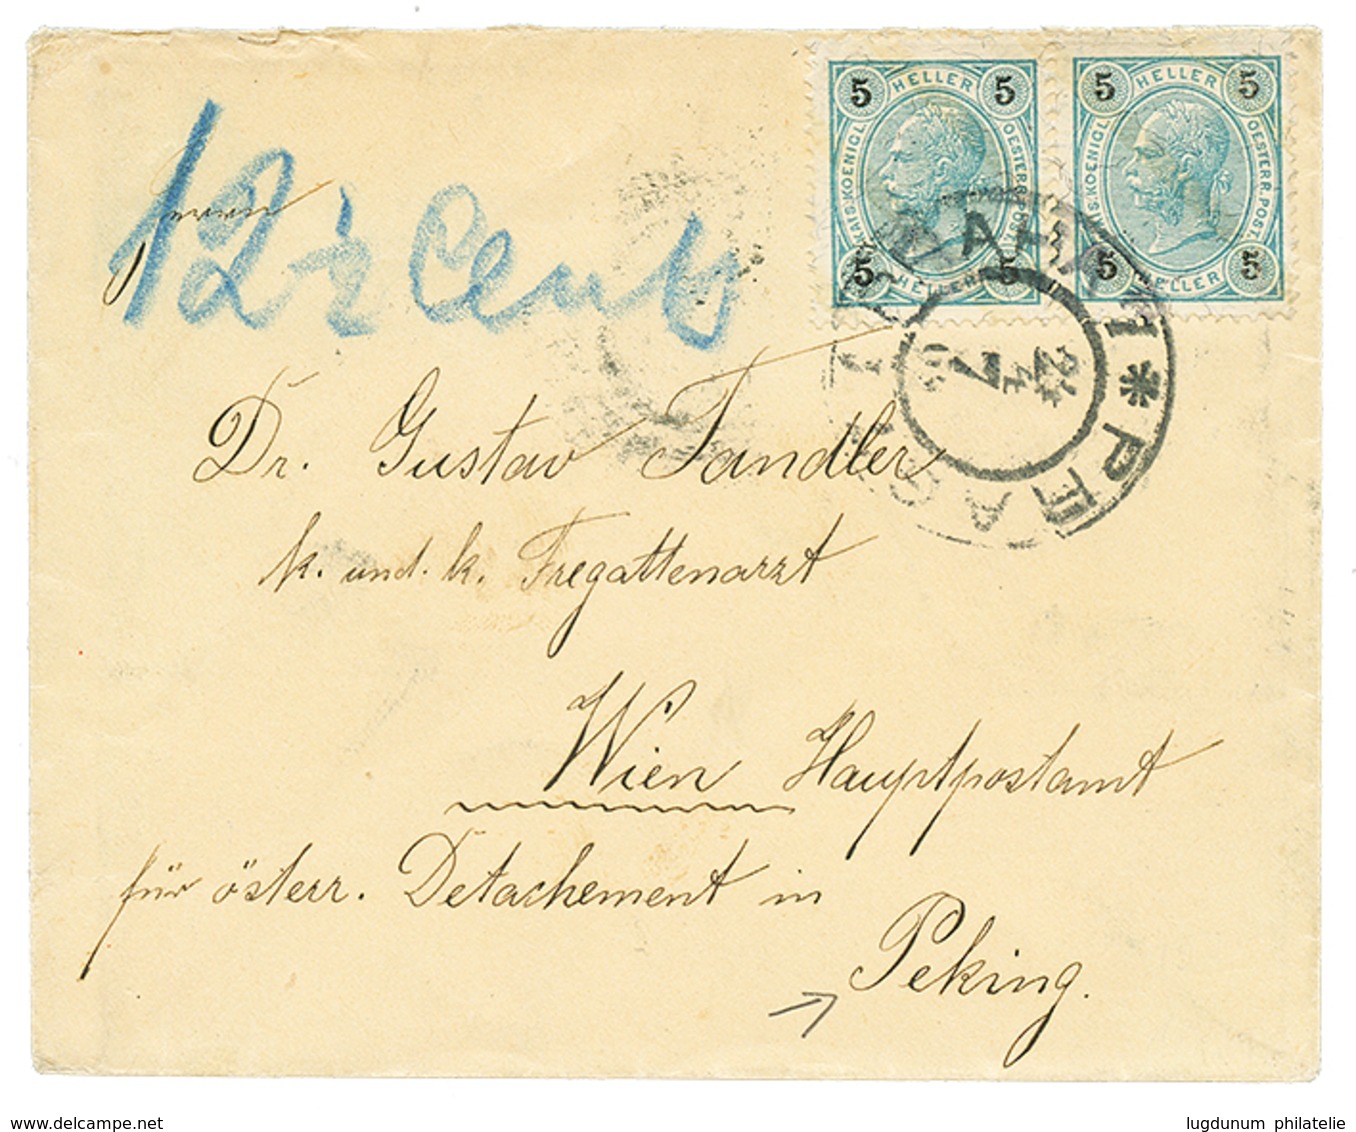 5 HELLER 5
KAIS. KOENIGL. OESTERR. POST.
5 HELLER 5
5 HELLER 5
KAIS. KOENIGL. OESTERR. POST.
5 HELLER 5
PRAHA 1 * PRAG 1
24
4
7
12½ Cents
Herrn
Dr. Gustav Tandler
k. und. k. Fregattenarzt
Wien Hauptpostamt
für österr. Detachement in
Peking.
www.delcampe.net
lugdunum philatelie